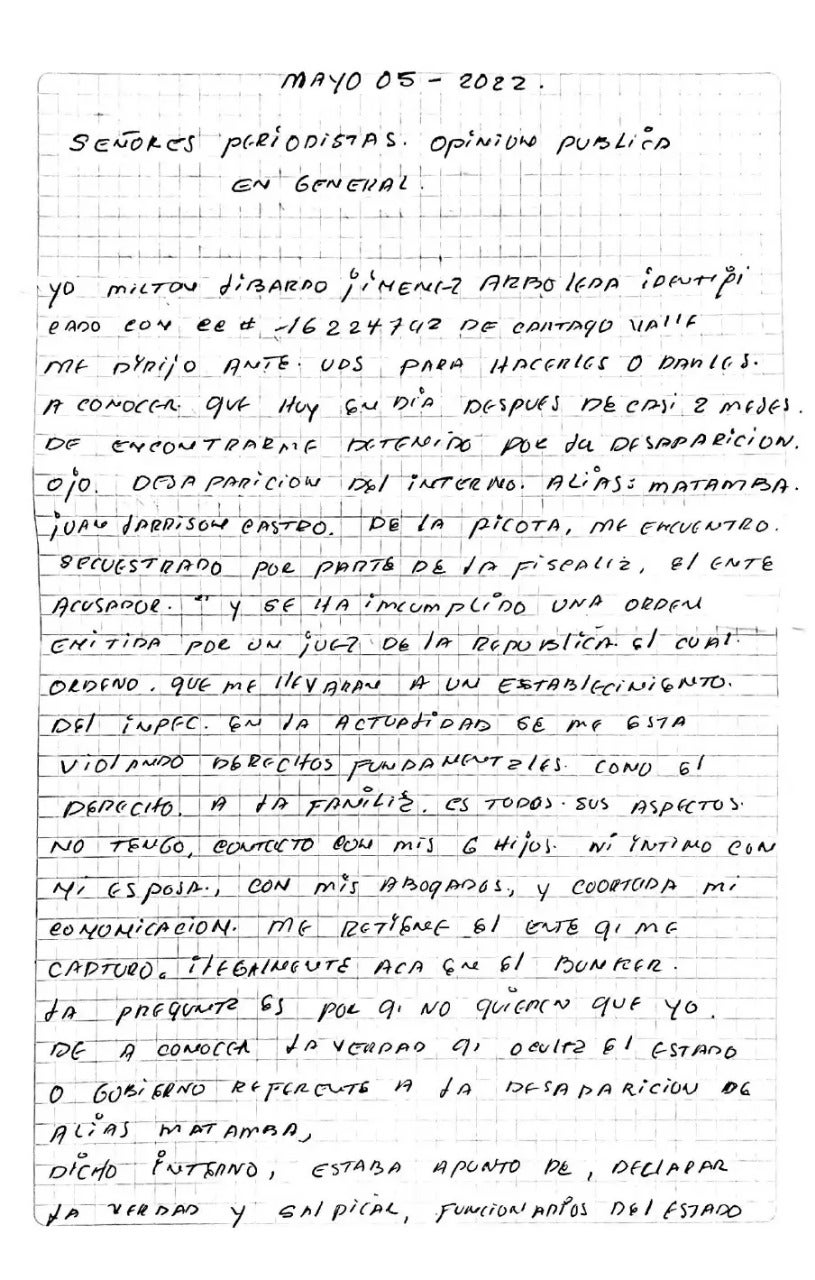 MAYO 05 - 2022.
SEÑORES PERIODISTAS. OPINION PUBLICA
EN GENERAL.
YO MILTON LIBARDO JIMENEZ ARBOLEDA IDENTIFI
CADO CON CC # -16224742 DE CARTAGO VALLE
ME DYRIJO ANTE. UDS PARA HACERLES O DARLES.
A CONOCER. QUE HUY EN DIA DESPUES DE CASI 2 MESES.
DE ENCONTRARME DETENIDO POR LA DESAPARICION.
OJO. DESAPARICION DEL INTERNO. ALIAS: MATAMBA.
JUAN LARRISON CASTRO. DE LA PICOTA, ME ENCUENTRO.
SECUESTRADO POR PARTE DE LA FISCALIA, El ENTE
ACUSADOR. " Y SE HA IMCUMPLIDO UNA ORDEN
EMITIDA POR UN JUEZ DE LA REPUBLICA El CUAl.
ORDENO. QUE ME llEVARAN A UN ESTABlECIMIENTO.
DEl INPEC. EN LA ACTUALIDAD SE ME ESTA
VIOlANDO DERECHOS FUNDAMENTALES. COMO El
DERECHO. A LA FAMILIA. ES TODOS. SUS ASPECTOS.
NO TENGO, CONTACTO CON MIS 6 HIJOS. NI INTIMO CON
MI ESPOSA., CON MIS ABOGADOS., Y COORTADA MI
COMUNICACION. ME RETIENE El ENTE QI ME
CAPTURO. IlEGAlMENTE ACA EN El BUNKER.
LA PREGUNTA ES POR QI NO QUIEREN QUE YO.
DE A CONOCER LA VERDAD QI OCULTA El ESTADO
O GOBIERNO REFERENTE A LA DESAPARICION DE
ALIAS MATAMBA,
DICHO INTERNO, ESTABA APUNTO DE, DEClARAR
LA VERDAD Y SAlPICAR, FUNCIONARIOS DEl ESTADO